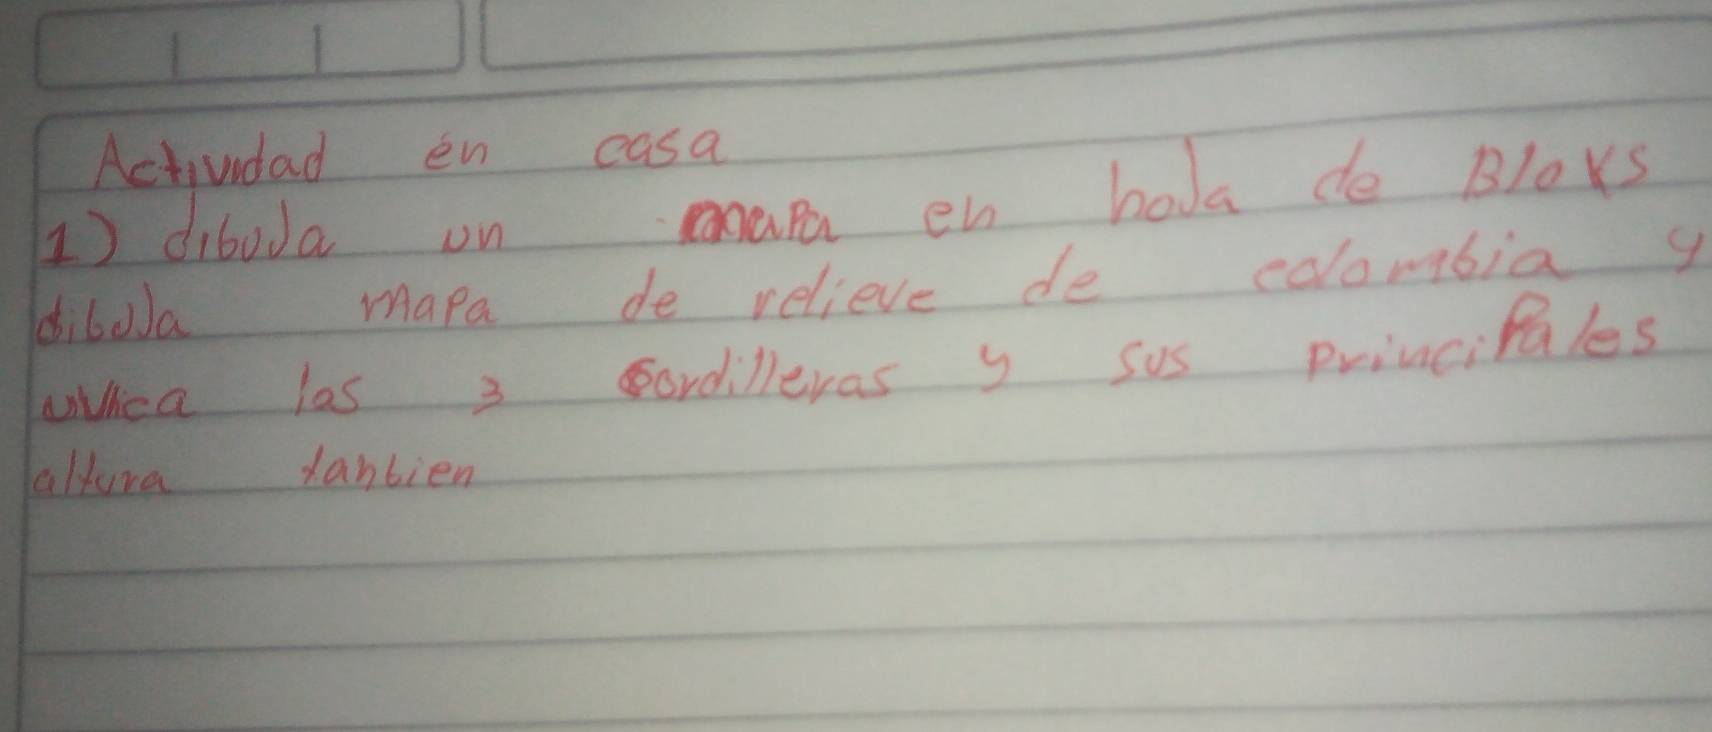 Actividad en casa
1) diboja un mapa en hoja de Bloks
diboja mapa de relieve de colombia y
uvica las 3 cordilleras y sus principales
altura tanbien